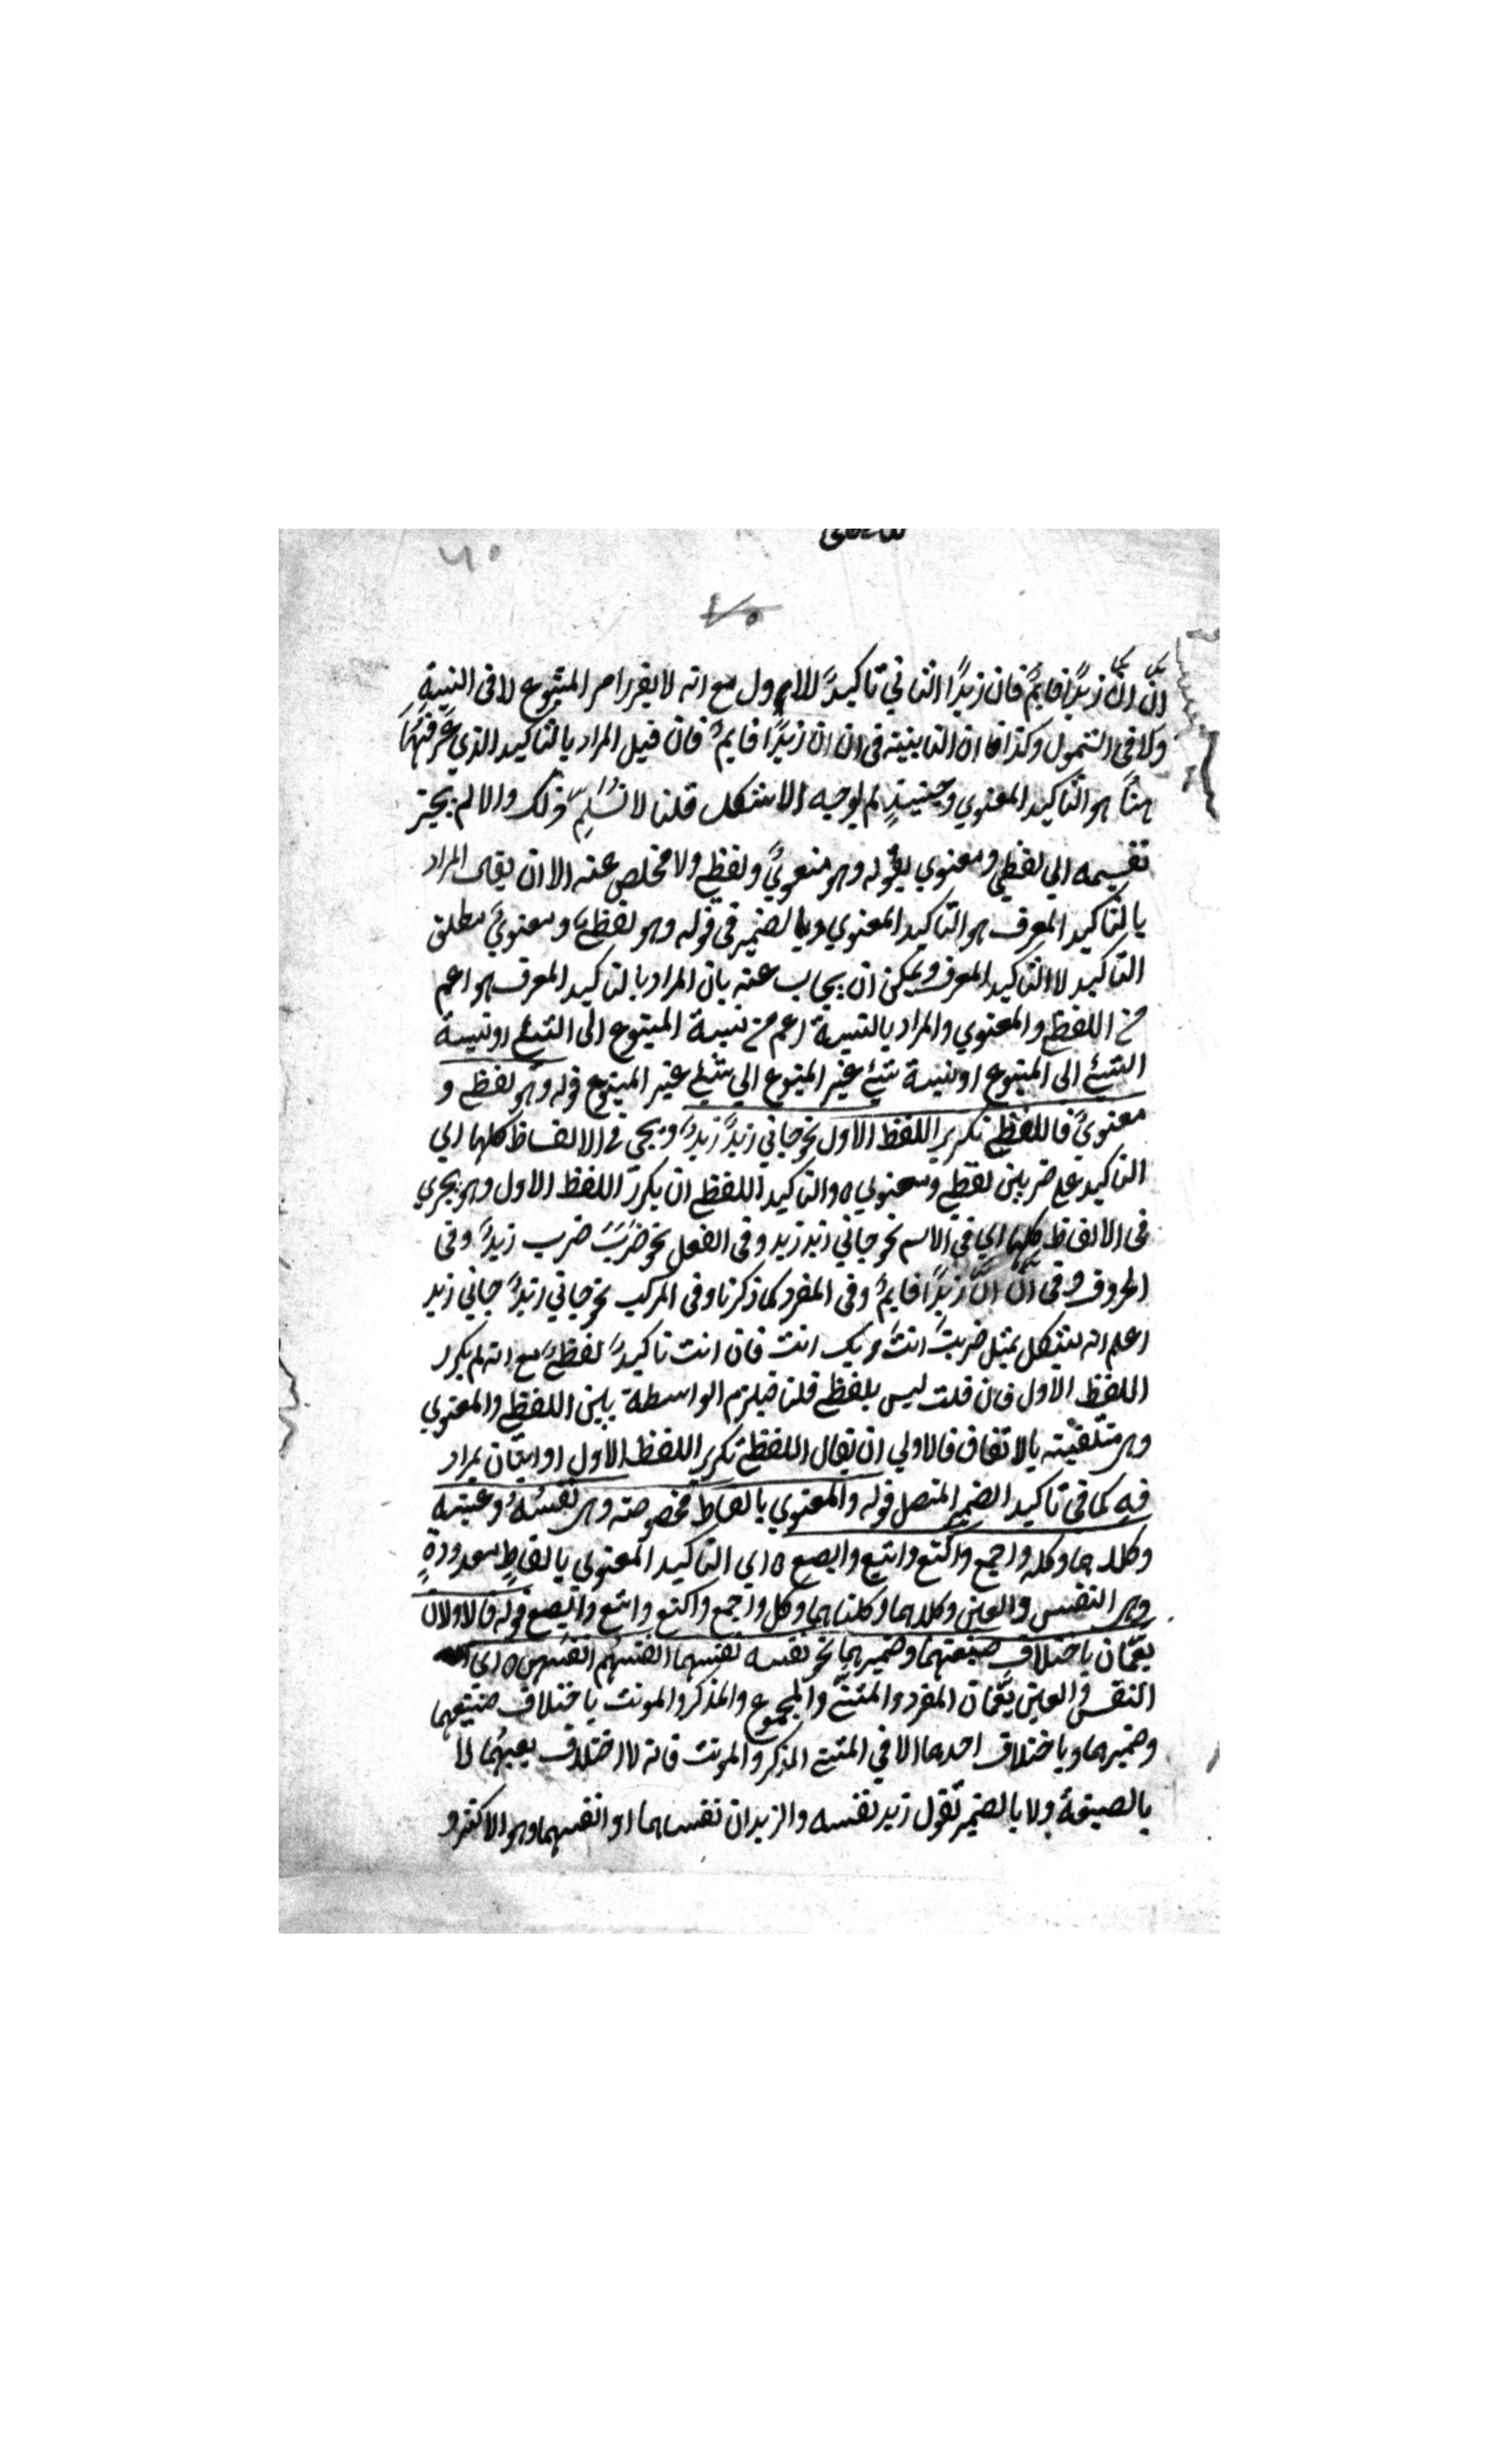 انّ انّ زيدًا قايمٌ فان زيدًا الثاني تاكيدٌ للاول مع انه لا يقرر امر المتبوع لا فى النسبةِ
ولا فى الشمول وكذا ان الثانية فى ان ان زيدًا قايمٌ فان قيل المراد بالتاكيد الذي عَرفتهُ
هنا هو التاكيد المعنوي وحينيذٍ لم يوجه الاشكل قلنا لا نُسَلِّم ذلك والا لم يجز
تقسيمه الي لفظي ومعنوي بقوله وهو معنويٌ ولفظي ولا مخلص عنه الا ان يقال المراد
بالتاكيد المعرف هو التاكيد المعنوي وبالضمير فى قوله وهو لفظي ومعنويٌ مطلق
التاكيد لا التاكيد المعرف ويمكن ان يجاب عنه بان المراد بالتاكيد المعرف هو اعم
من اللفظي والمعنوي والمراد بالنسبة اعم من نسبة المتبوع الى الشئ او نسبة
الشئ الى المتبوع او نسبة شئ غير المتبوع الي شئ غير المتبوع قوله وهو لفظي و
معنويٌ فاللفظي تكرير اللفظ الاول نحو جاني زيدٌ زيدٌ ويجي في الالفاظ كلها اي
التاكيد علي ضربين لفظي ومعنوي ٥ والتاكيد اللفظي ان يكرر اللفظ الاول وهو يجري
فى الالفاظ كلها اي فى الاسم نحو جاني زيد زيد وفى الفعل نحو ضَرَبَ ضرب زيدٌ وفى
الحروف وفى انّ انّ زيدًا قايمٌ وفى المفرد كما ذكرنا وفى المركب نحو جاني زيدٌ جاني زيد
اعلم انه يشكل بمثل ضربتَ انتَ وبك انت فان انت تاكيدٌ لفظيٌ مع انه لم يكرر
اللفظ الاول فان قلت ليس بلفظي قلنا فيلزم الواسطة بين اللفظي والمعنوي
وهى منتفية بالاتفاق فالاولي ان يقال اللفظي تكرير اللفظ الاول او اتيان بمراد
فه كما فى تاكيد الضمير المتصل قوله والمعنوي بالفاظ مخصوصة وهى نفسُهُ وعينه
وكلاهما وكله واجمع واكتع وابتع وابصع ٥ اي التاكيد المعنوي بالفاظٍ معدودةٍ
وهى النفس والعين وكلاهما وكلتاهما وكل واجمع واكتع وابتع وابصع قوله فالاولان
يعمّان باختلاف صيغتهما وضميرهما نحو نفسه نفسهما انفسهم انفسهن ٥ اي
النفس والعين يعمّان المفرد والمثنّي والمجموع والمذكر والمونث باختلاف صيغتهما
وضميرهما وباختلاف احدهما الا في المثني المذكر والمونث فانه لا اختلاف بينهُما لا
بالصيغة ولا بالضمير تقول زيد نفسه والزيدان نفساهما او انفسهما وهو الاكثر و